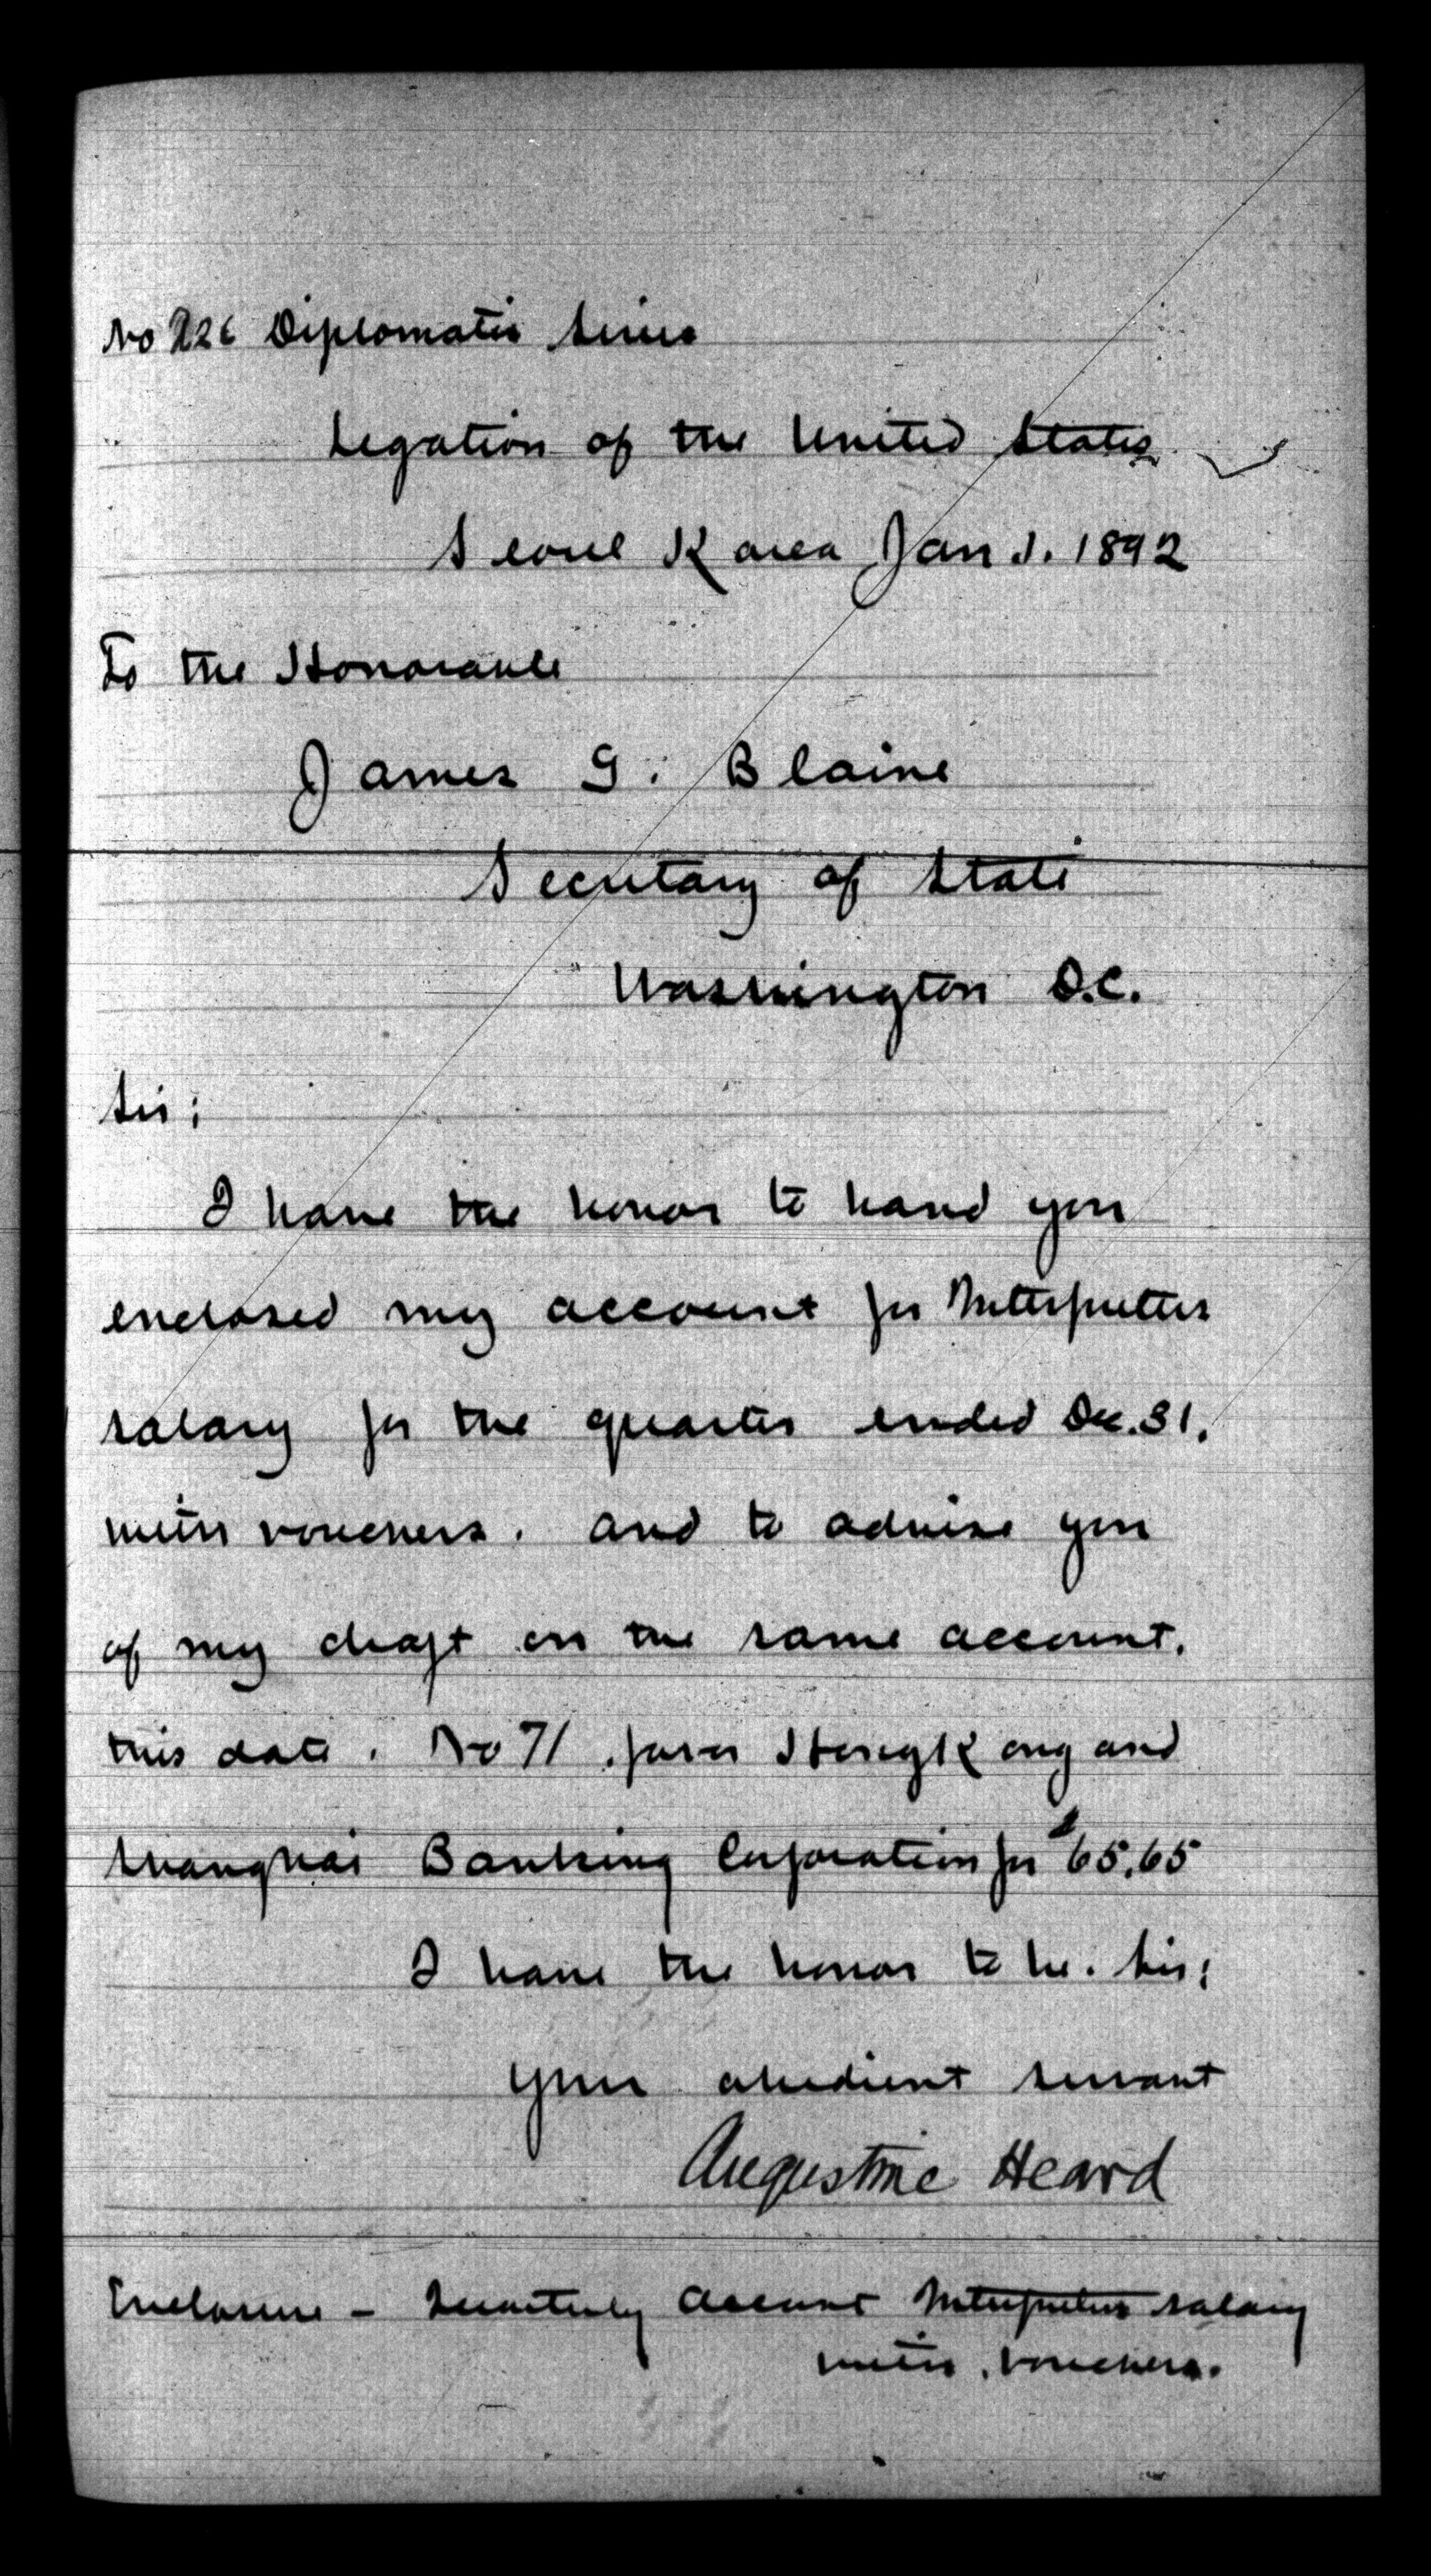 No 226 Diplomatic Series
Legation of the United States
Seoul Korea Jan 1. 1892
To the Honorable
James G. Blaine
Secretary of State
Washington D.C.
Sir:
I have the honor to hand you
enclosed my account for Interpreters
salary for the quarter ended Dec. 31,
with vouchers. and to advise you
of my draft on the same account,
this date, No 71. favor HongKong and
Shanghai Banking Corporation for $65.65
I have the honor to be. Sir:
Your obedient servant
Augustine Heard
Enclosure - Quarterly Account Interpreters salary
with vouchers.